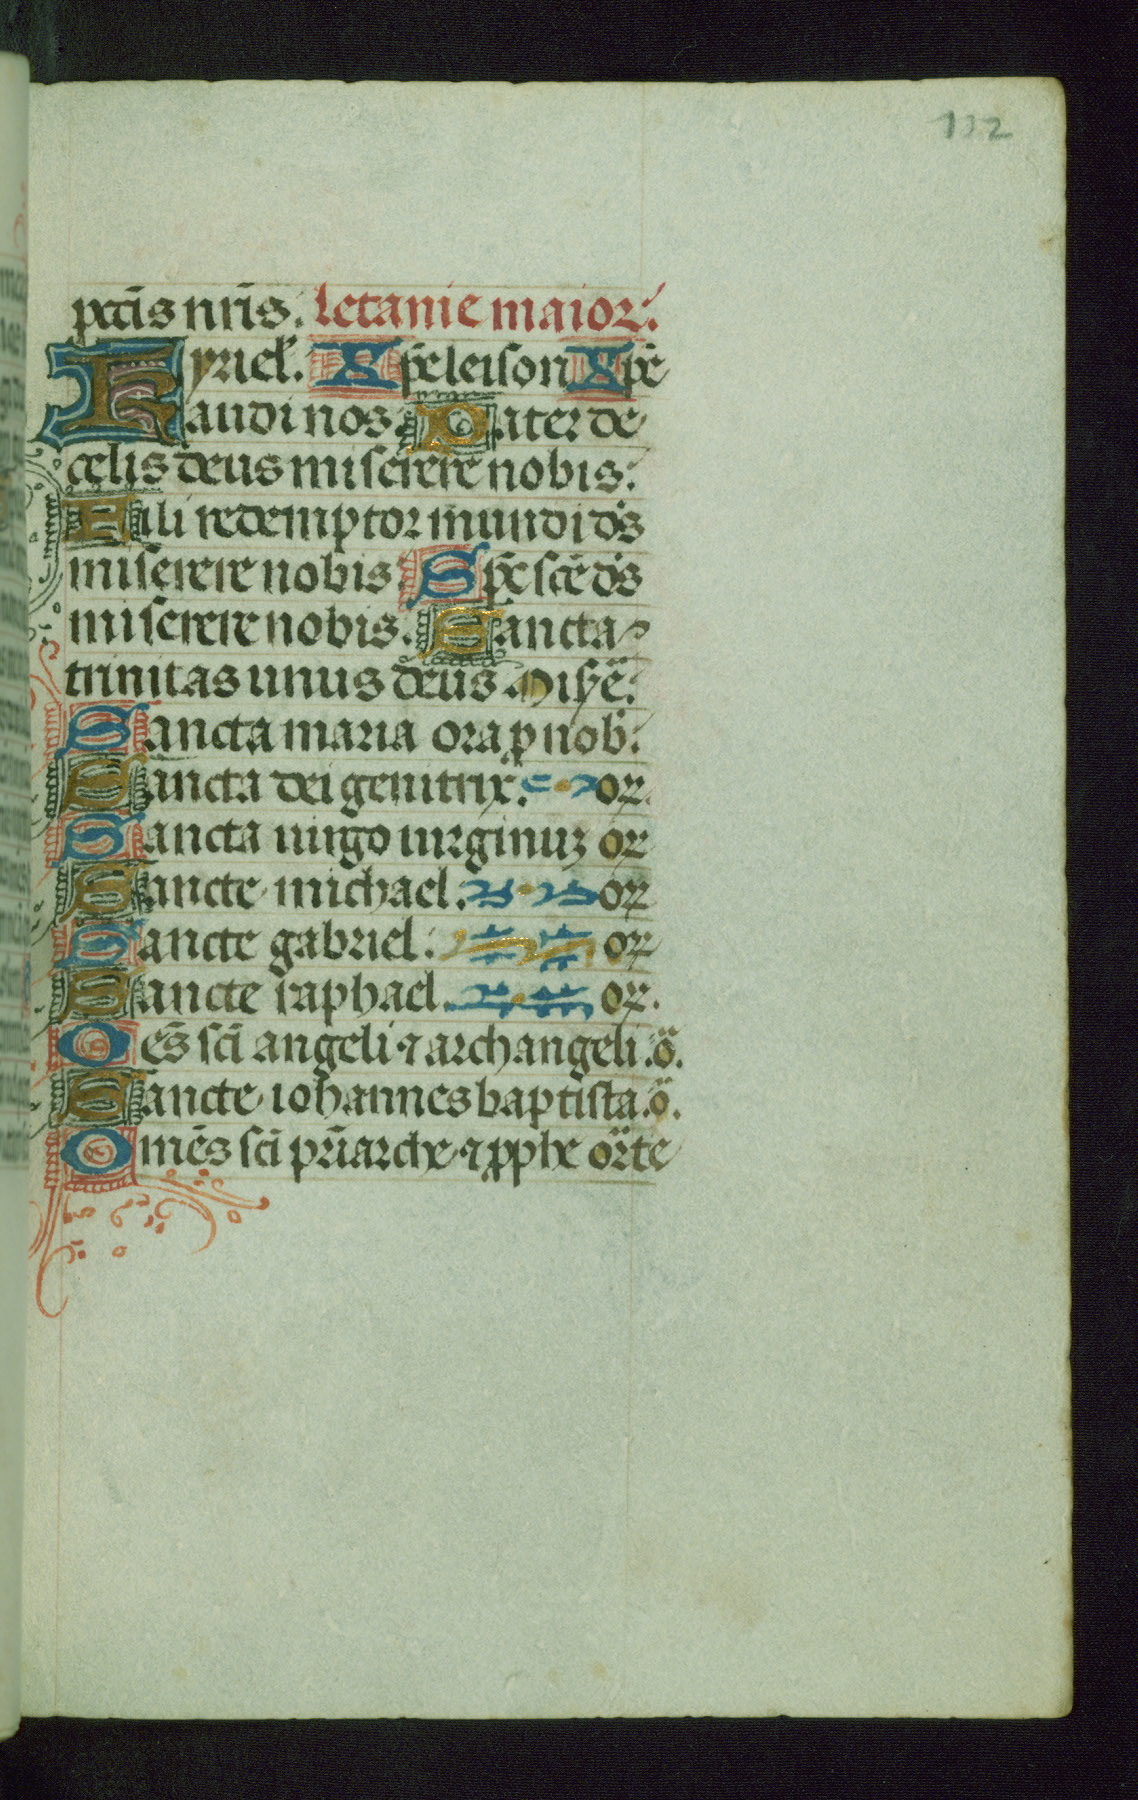 132
pctis nr̄is. letanie maior.
Kyriel'. Xp̄eleison Xp̄e
audi nos. Pater de
celis deus miserere nobis.
Fili redemptor mundi ds̄
miserere nobis. Sp̄c sc̄e ds̄
miserere nobis. Sancta
trinitas unus deus Mis̄e.
Sancta maria ora ꝓ nob'.
Sancta dei genitrix. or.
Sancta uirgo uirginuꝫ or
Sancte michael. or
Sancte gabriel. or
Sancte raphael. or.
Oēs sc̄i angeli ⁊ archangeli. o.
Sancte iohannes baptista. o.
Omēs sc̄i pr̄iarche ⁊ ꝓphe or̄te